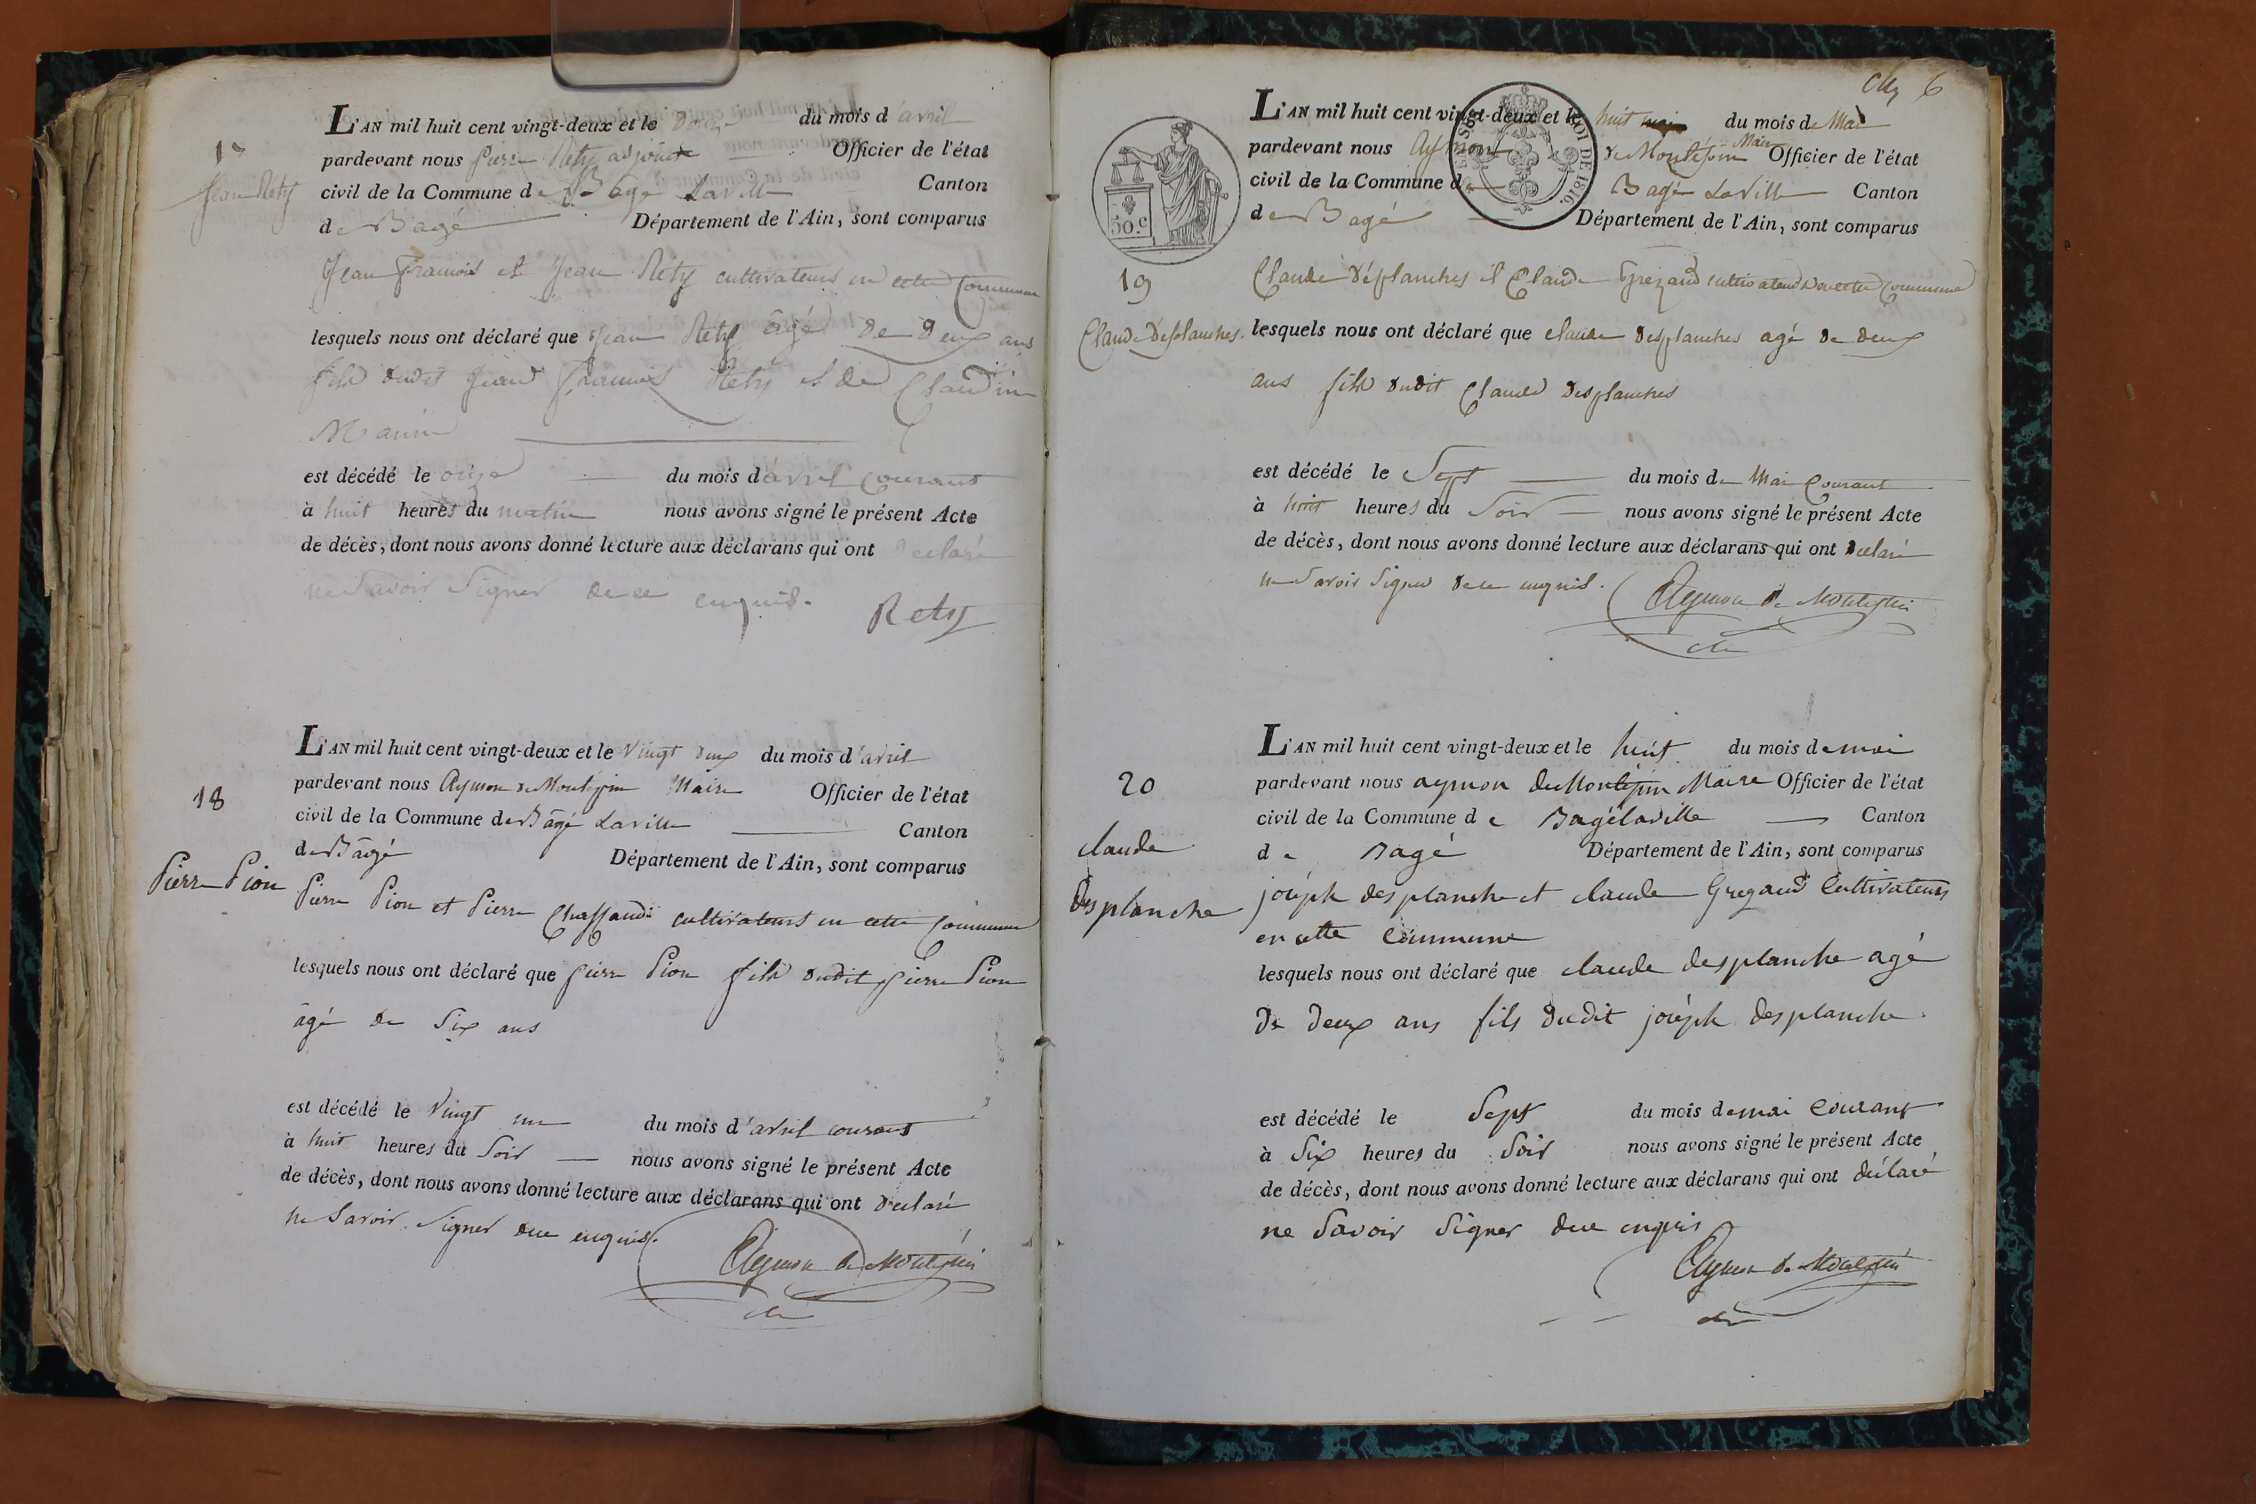 17
Jean Rety
L'AN mil huit cent vingt-deux et le douze du mois d'avril
pardevant nous pierre Rety adjoint Officier de l'état
civil de la Commune de Bagé Laville Canton
de Bagé Département de l'Ain, sont comparus
Jean françois et Jean Rety cultivateurs en cette commune
lesquels nous ont déclaré que jean Rety agé de deux ans
fils dudit jean françois Rety et de Claudine
Marin
est décédé le onze du mois d'avril courant
à huit heures du matin nous avons signé le présent Acte
de décès, dont nous avons donné lecture aux déclarans qui ont declaré
ne savoir signer de ce enquis.
Rety
18
Pierre Pion
L'AN mil huit cent vingt-deux et le vingt deux du mois d'avril
pardevant nous Aymon de Montépin Maire Officier de l'état
civil de la Commune de Bâgé Laville Canton
de Bâgé Département de l'Ain, sont comparus
Pierre Pion et Pierre Chaffaud cultivateurs en cette commune
lesquels nous ont déclaré que pierre Pion fils dudit pierre Pion
âgé de six ans
est décédé le vingt un du mois d'avril courant
à huit heures du soir nous avons signé le présent Acte
de décès, dont nous avons donné lecture aux déclarans qui ont declaré
ne savoir signer de ce enquis.
Aymon de Montépin
6
50.c
LOI DE 1816.
L'AN mil huit cent vingt-deux et le huit du mois de Mai
pardevant nous Aymon de Montépin Maire Officier de l'état
civil de la Commune de Bagé Laville Canton
de Bagé Département de l'Ain, sont comparus
19
Claude Desplanches
Claude Désplanches et Claude Grezaud cultivateurs en cette commune
lesquels nous ont déclaré que claude desplanches agé de deux
ans fils dudit Claude desplanches
est décédé le sept du mois de Mai courant
à huit heures du soir nous avons signé le présent Acte
de décès, dont nous avons donné lecture aux déclarans qui ont declaré
ne savoir signer de ce enquis.
Aymon de Montépin
20
claude
desplanche
L'AN mil huit cent vingt-deux et le huit du mois de mai
pardevant nous aymon de Montépin Maire Officier de l'état
civil de la Commune de Bagélaville Canton
de Bagé Département de l'Ain, sont comparus
joseph desplanche et claude Grezaud Cultivateurs
en cette commune
lesquels nous ont déclaré que claude desplanche agé
de deux ans fils dudit joseph desplanche.
est décédé le sept du mois de mai courant
à six heures du soir nous avons signé le présent Acte
de décès, dont nous avons donné lecture aux déclarans qui ont déclaré
ne savoir signer de ce enquis
Aymon de Montépin